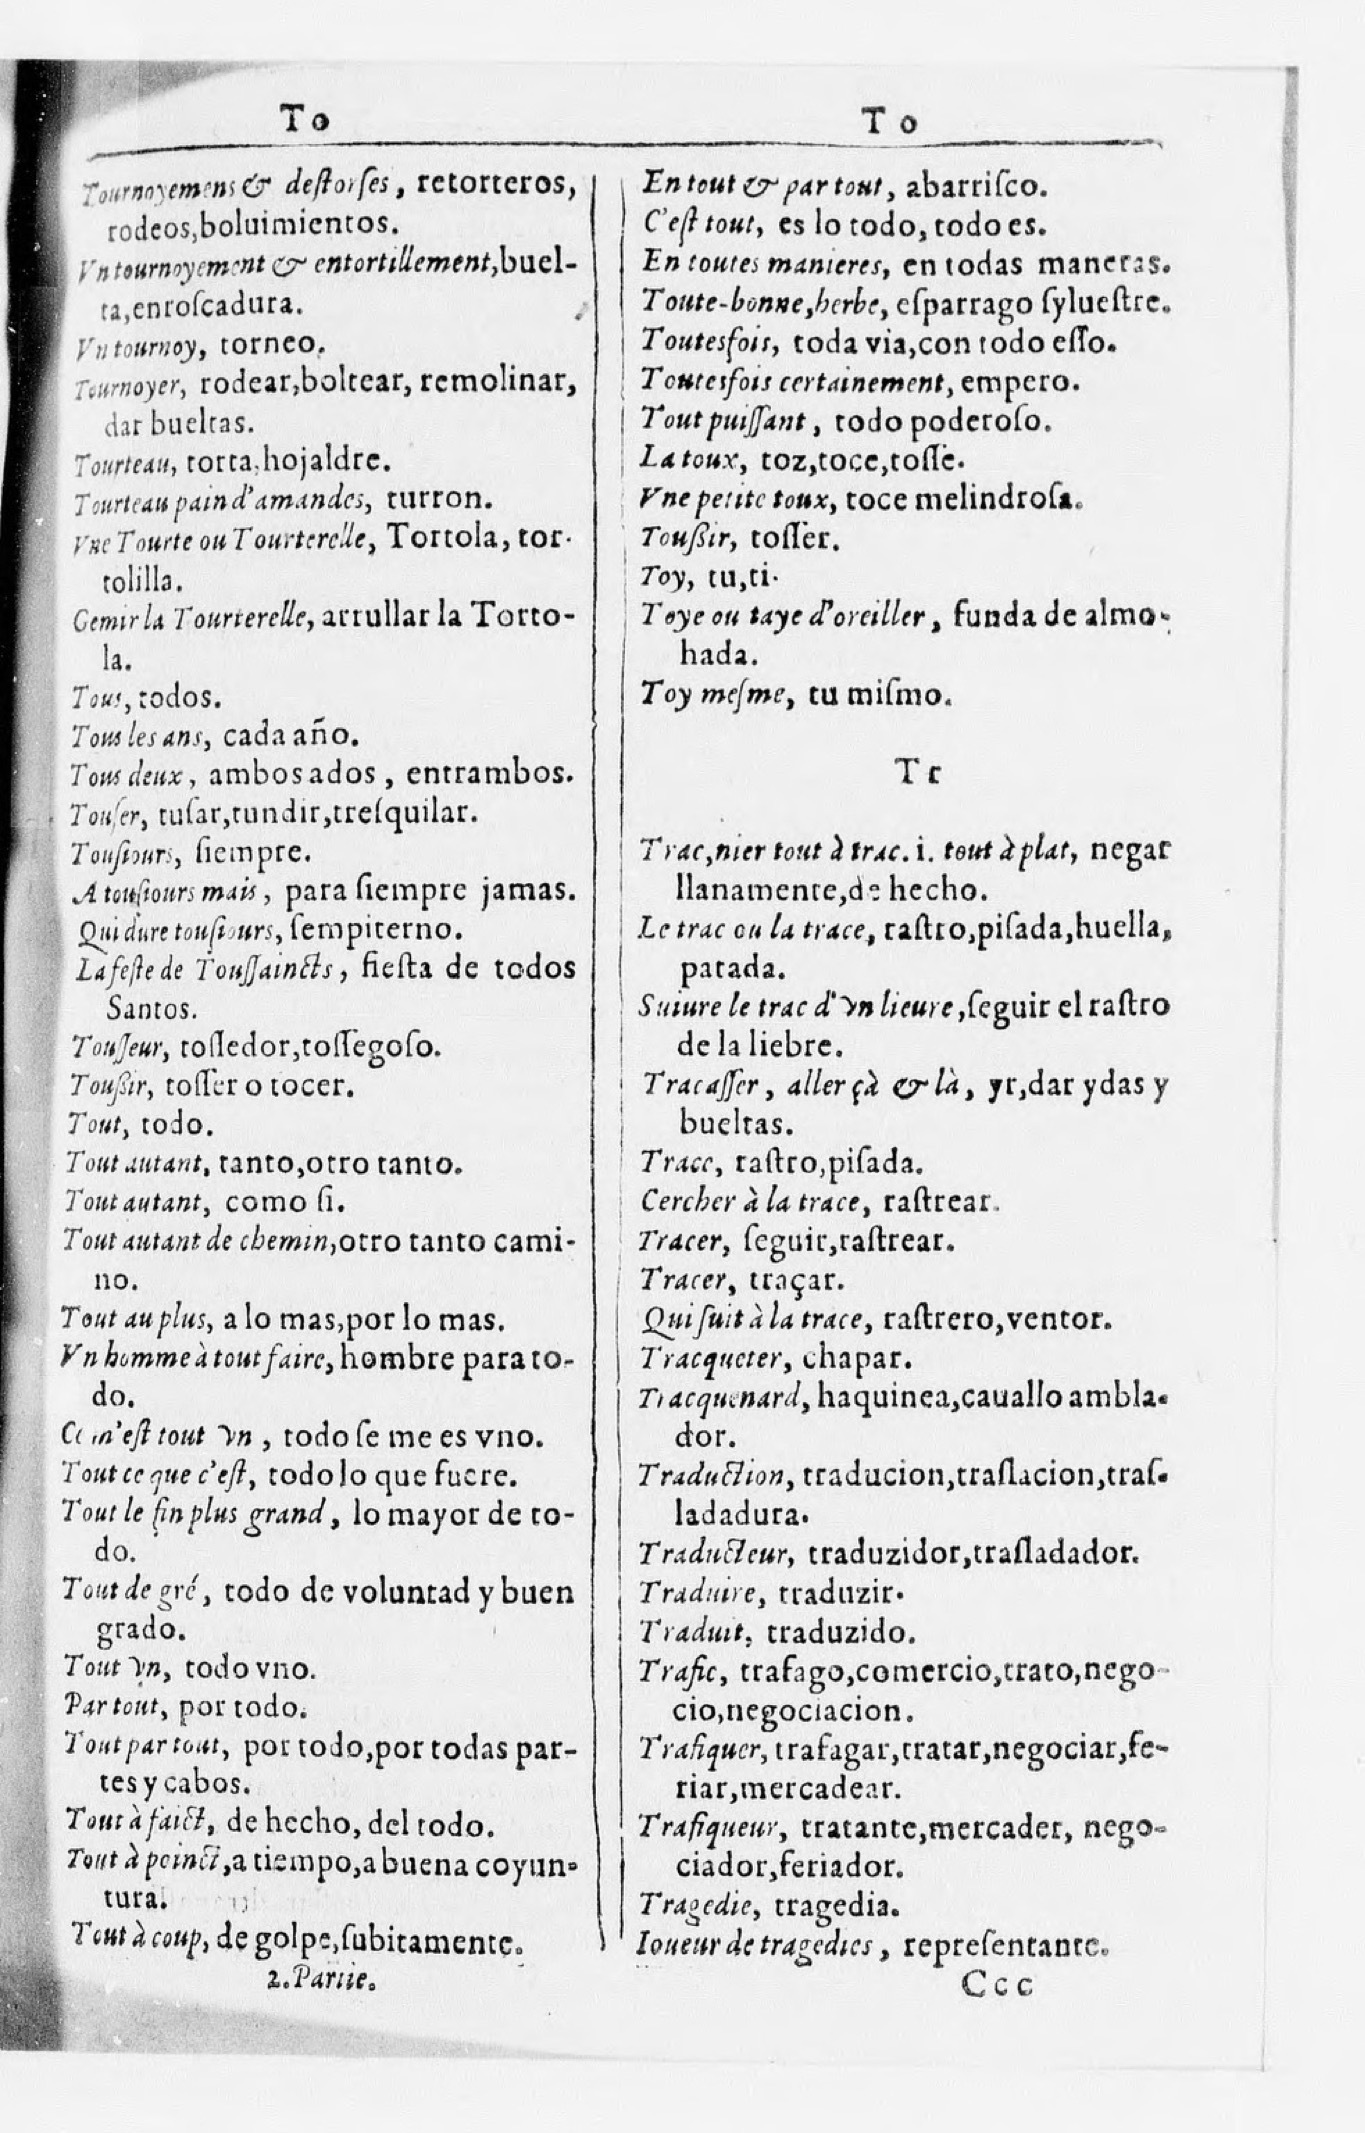 To
Tournoyemens & deſtorſes, retorteros,
rodeos,boluimientos.
Vn tournoyement & entortillement,buel-
ta,enroſcadura.
Vn tournoy, torneo.
Tournoyer, rodear,boltear, remolinar,
dar bueltas.
Tourteau, torta,hojaldre.
Tourteau pain d'amandes, turron.
Vne Tourte ou Tourterelle, Tortola, tor-
tolilla.
Gemir la Tourterelle, arrullar la Torto-
la.
Tous, todos.
Tous les ans, cada año.
Tous deux, ambos ados, entrambos.
Touſer, tuſar,tundir,treſquilar.
Touſiours, ſiempre.
A touſiours mais, para ſiempre jamas.
Qui dure touſiours, ſempiterno.
La feſte de Touſſaincts, fieſta de todos
Santos.
Touſſeur, toſſedor,toſſegoſo.
Toußir, toſſer o tocer.
Tout, todo.
Tout autant, tanto,otro tanto.
Tout autant, como ſi.
Tout autant de chemin,otro tanto cami-
no.
Tout au plus, a lo mas,por lo mas.
Vn homme à tout faire, hombre para to-
do.
Ce m'eſt tout vn, todo ſe me es vno.
Tout ce que c'eſt, todo lo que fuere.
Tout le fin plus grand, lo mayor de to-
do.
Tout de gré, todo de voluntad y buen
grado.
Tout vn, todo vno.
Par tout, por todo.
Tout par tout, por todo,por todas par-
tes y cabos.
Tout à faict, de hecho, del todo.
Tout à poinct,a tiempo,a buena coyun-
tura.
Tout à coup, de golpe,ſubitamente.
2.Partie.
To
En tout & par tout, abarriſco.
C'eſt tout, es lo todo, todo es.
En toutes manieres, en todas maneras.
Toute-bonne,herbe, eſparrago ſylueſtre.
Toutesfois, toda via,con todo eſſo.
Toutesfois certainement, empero.
Tout puiſſant, todo poderoſo.
La toux, toz,toce,toſſe.
Vne petite toux, toce melindroſa.
Toußir, toſſer.
Toy, tu,ti.
Toye ou taye d'oreiller, funda de almo-
hada.
Toy meſme, tu miſmo.
Tr
Trac,nier tout à trac. i. tout à plat, negar
llanamente,de hecho.
Le trac ou la trace, raſtro,piſada,huella,
patada.
Suiure le trac d'vn lieure,ſeguir el raſtro
de la liebre.
Tracaſſer, aller çà & là, yr,dar ydas y
bueltas.
Trace, raſtro,piſada.
Cercher à la trace, raſtrear.
Tracer, ſeguir,raſtrear.
Tracer, traçar.
Qui ſuit à la trace, raſtrero,ventor.
Tracqueter, chapar.
Tracquenard, haquinea,cauallo ambla-
dor.
Traduction, traducion,traſlacion,traſ-
ladadura.
Traducteur, traduzidor,traſladador.
Traduire, traduzir.
Traduit, traduzido.
Trafic, trafago,comercio,trato,nego-
cio,negociacion.
Trafiquer, trafagar,tratar,negociar,fe-
riar,mercadear.
Trafiqueur, tratante,mercader, nego-
ciador,feriador.
Tragedie, tragedia.
Ioueur de tragedies, repreſentante.
Ccc